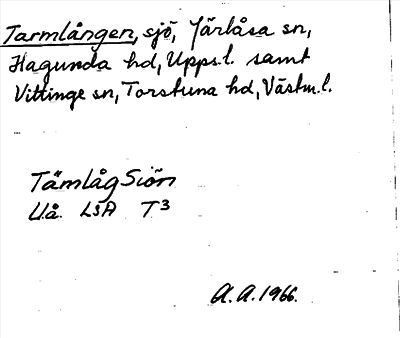 Tarmlången, sjö, Järlåsa sn,
Hagunda hd, Upps.l. samt
Vittinge sn, Torstuna hd, Västm.l.
Tämlåg Siön
U.å. LSA T3
A.A. 1966.